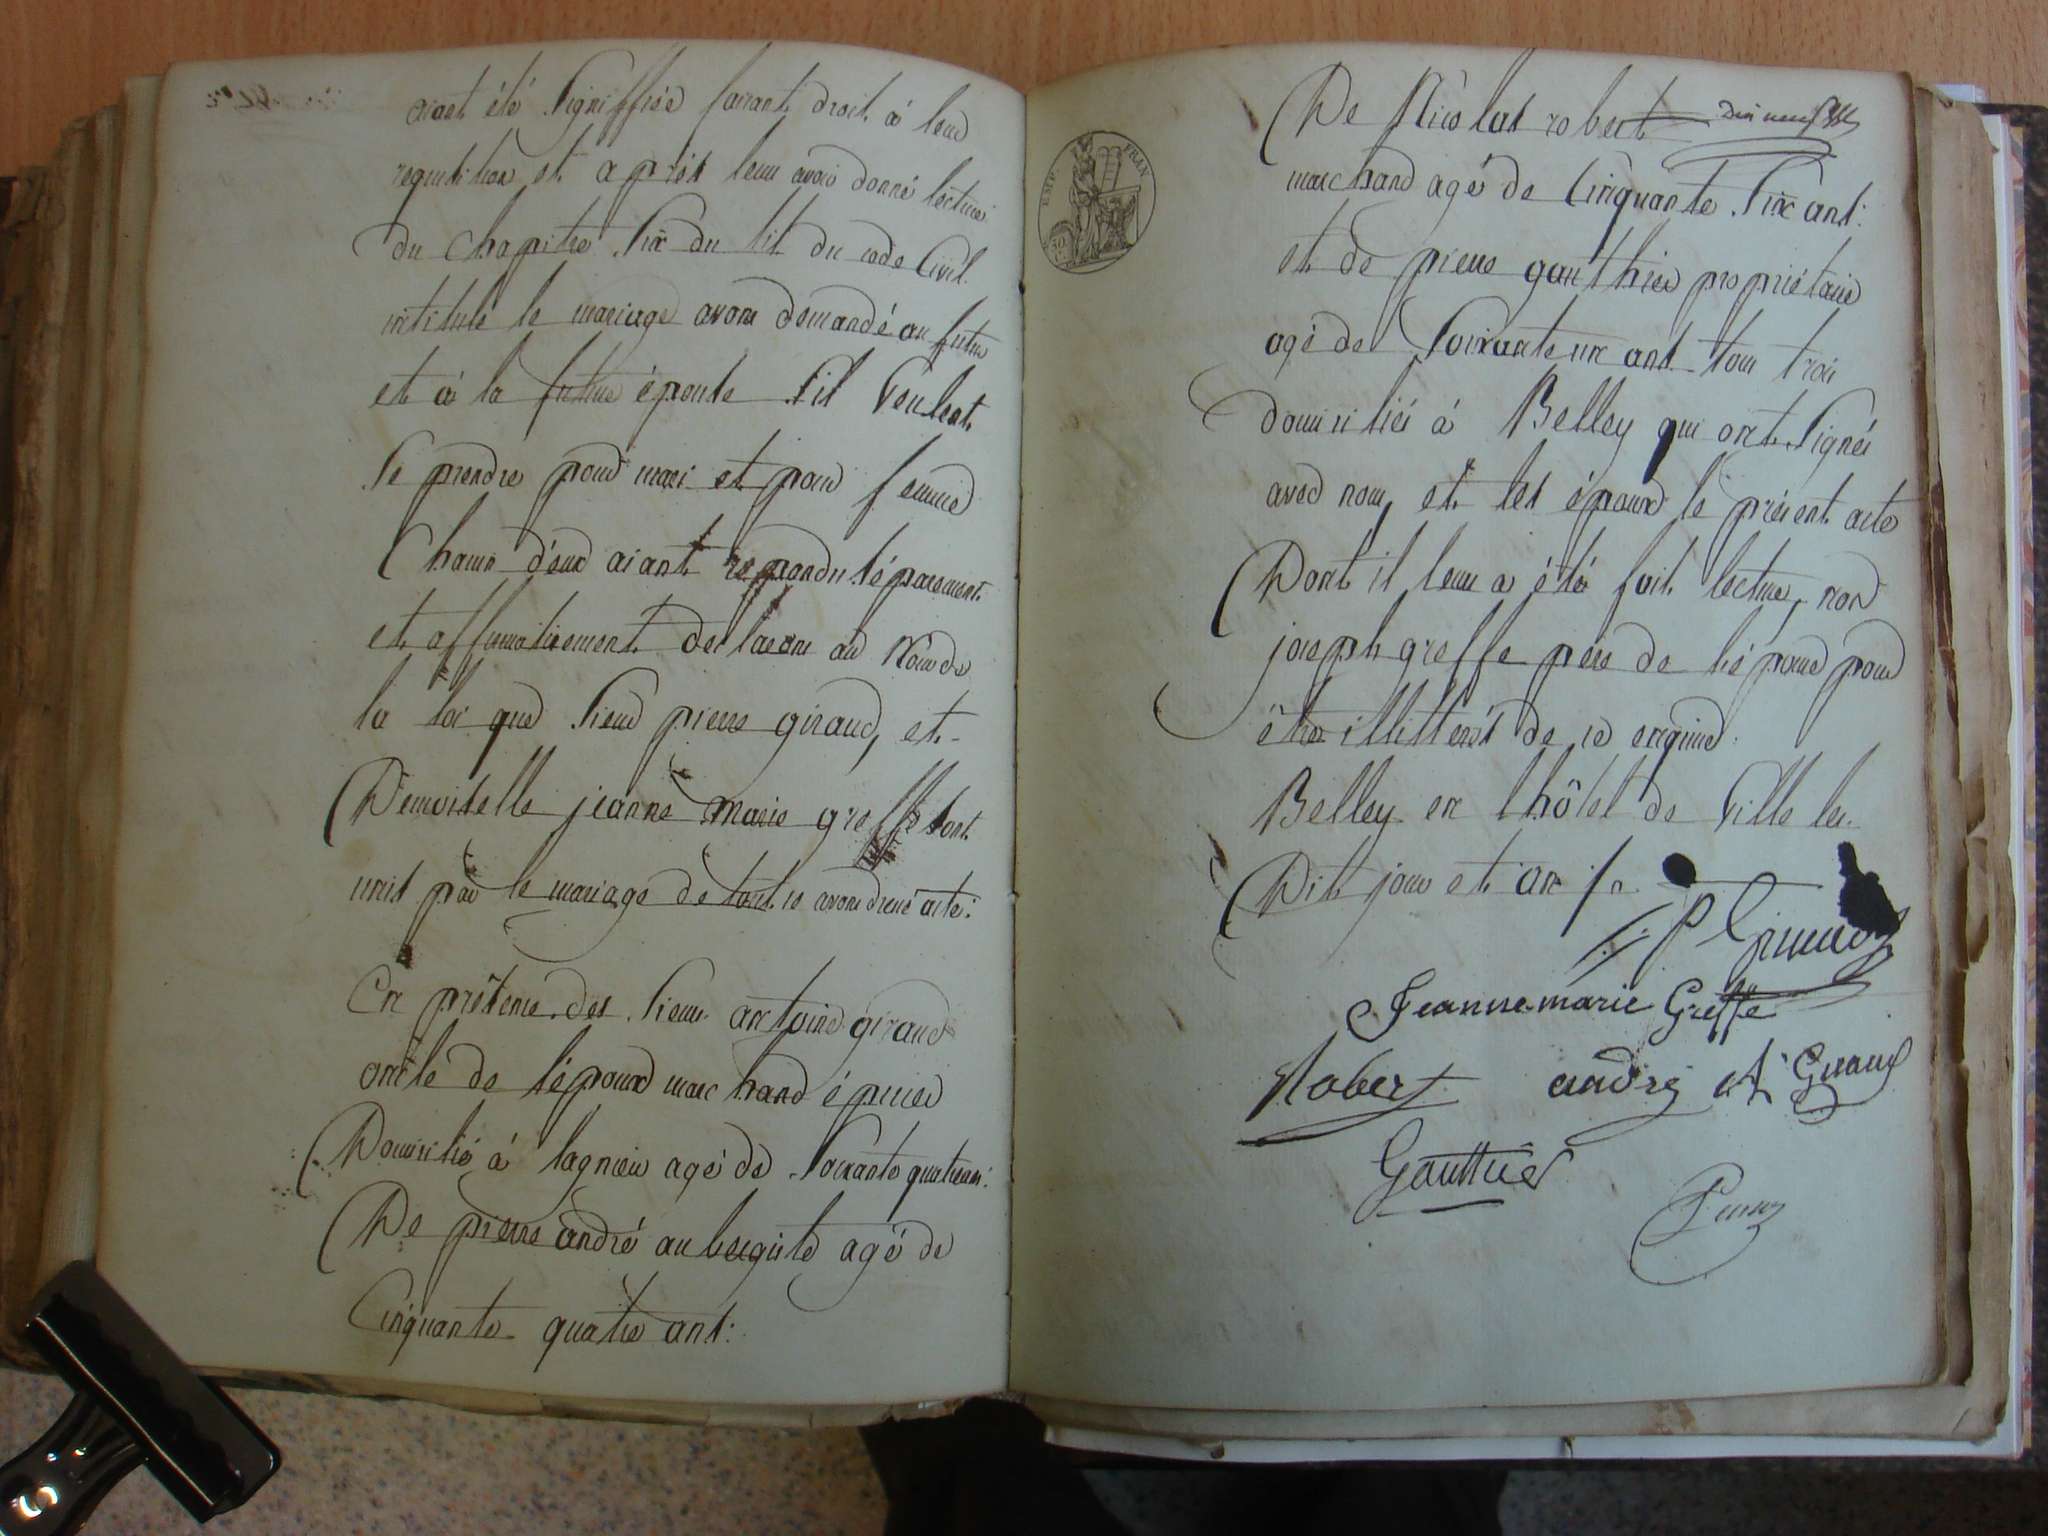 aiant été Signiffiée faisant droit à leur
requisition et après leur avoir donné lecture
du Chapitre Six du tit du code Civil
intitulé le mariage avons demandé au futur
et à la future épouse S'il Veulent
Se prendre pour mari et pour femme
Chacun d'eux aiant repondu séparement
et affirmativement declarons au Nom de
la loi que Sieur pierre giraud, et
Demoiselle jeanne marie greffe sont
unis par le mariage de tout ce avons dressé acte:
En présence des Sieurs antoine giraud
oncle de l'époux marchand épicier
Domicilié à lagnieu agé de Soixante quatre ans:
De pierre andré aubergiste agé de
Cinquante quatre ans:
EMP. FRAN
De Nicolas robert
marchand agé de Cinquante Six ans:
et de pierre gauthier propriétaire
agé de Soixante un ans tous trois
domiciliés à Belley qui ont Signés
avec nous et les époux le présent acte
Dont il leur a été fait lecture, non
joseph greffe père de l'épouse pour
être illitteré de ce enquis
Belley en l'hôtel de Ville les
Dit jour et an
P Giraud
Jeanne-marie Greffe
Robert andré At Giraud
Gauthier